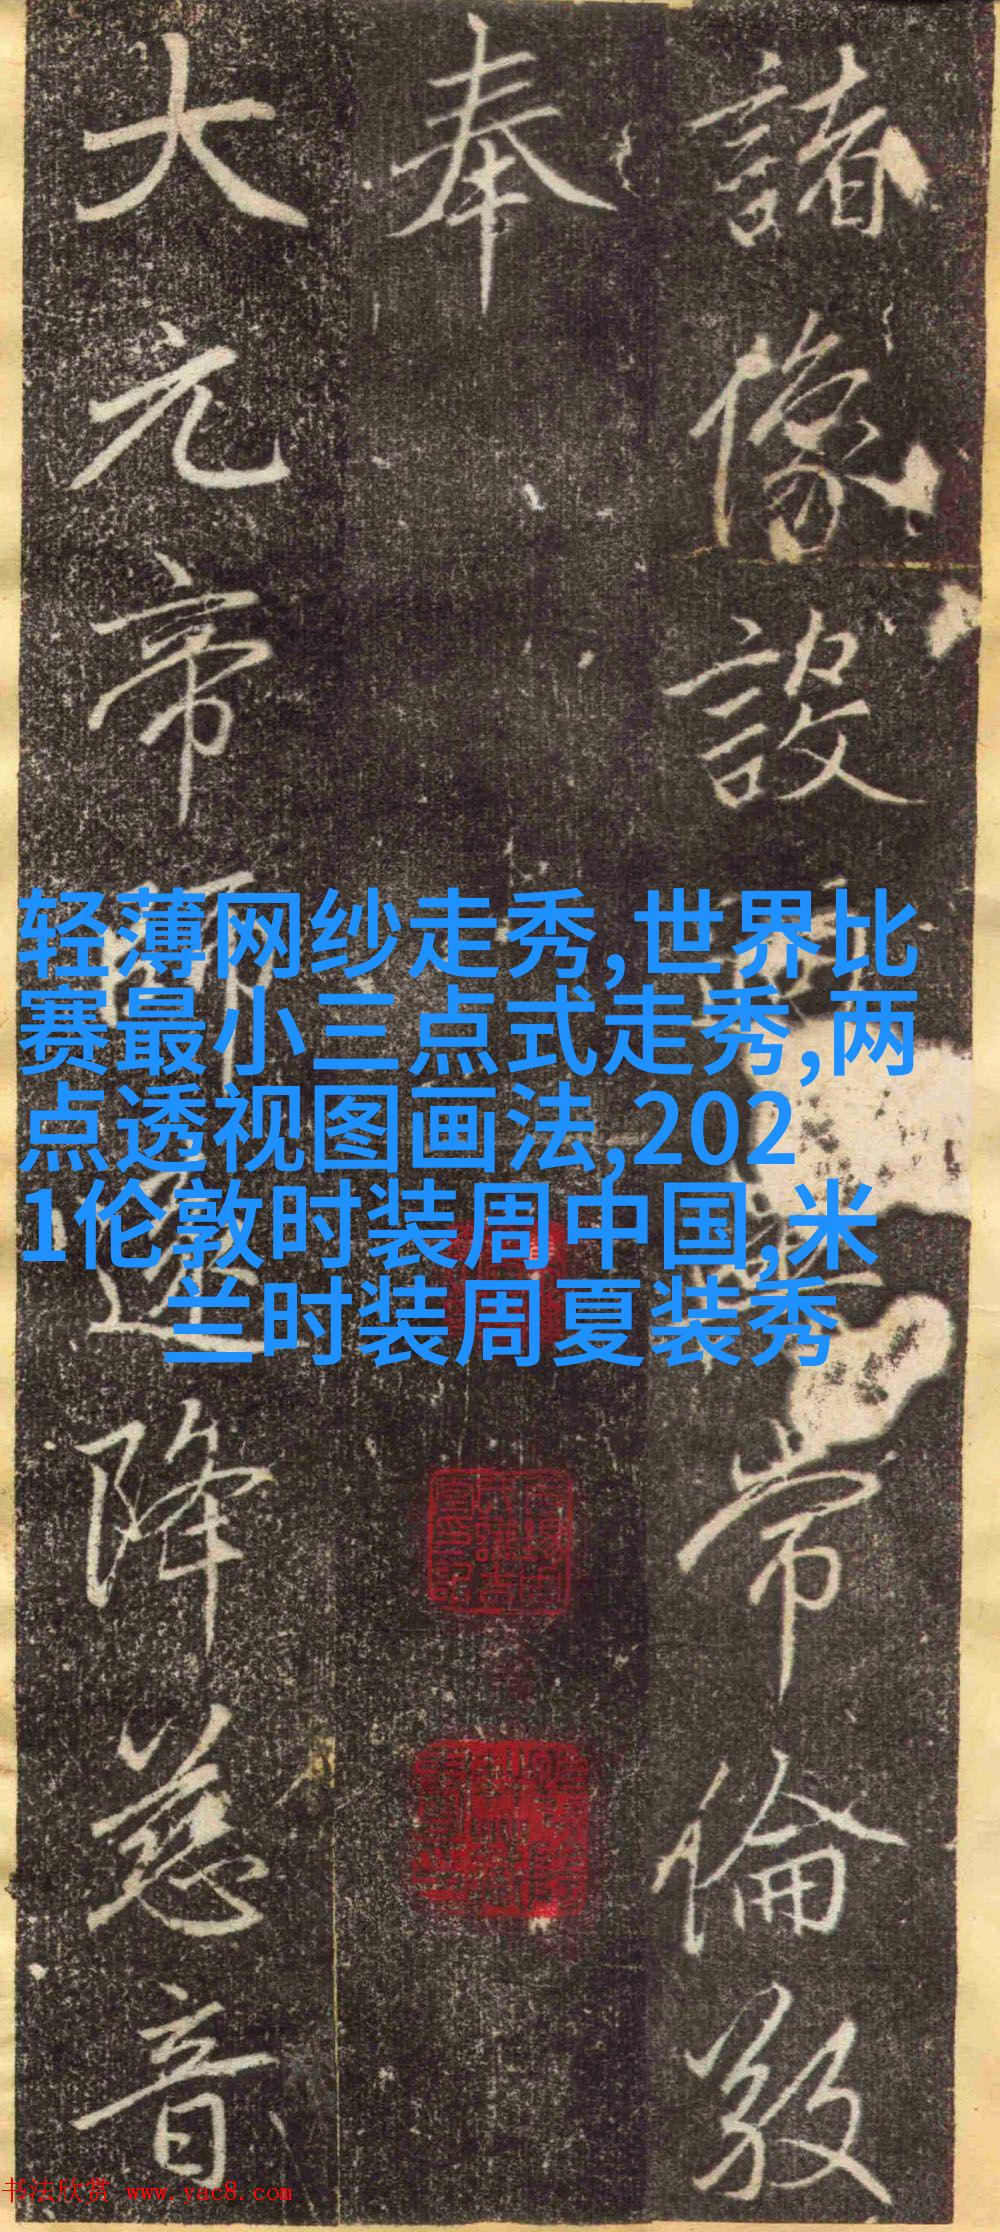 諸像設常倫
奉
大元帝師降慈音
轻薄网纱走秀,世界比
赛最小三点式走秀,两
点透视图画法,202
1伦敦时装周中国,米
兰时装周夏装秀
书法欣赏 www.yac8.com